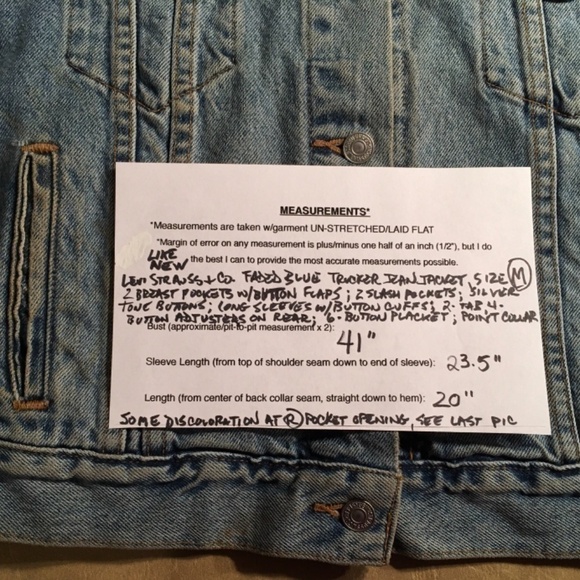 MEASUREMENTS*
*Measurements are taken w/garment UN-STRETCHED/LAID FLAT
*Margin of error on any measurement is plus/minus one half of an inch (1/2"), but I do
LIKE NEW the best I can to provide the most accurate measurements possible.
LEVI STRAUSS & CO. FADED BLUE TRUCKER JEAN JACKET, SIZE M
2 BREAST POCKETS W/BUTTON FLAPS; 2 SLASH POCKETS; SILVER
TONE BUTTONS; LONG SLEEVES W/BUTTON CUFFS; 2-TAB 4-
BUTTON ADJUSTERS ON REAR; 6-BUTTON PLACKET; POINT COLLAR
Bust (approximate/pit-to-pit measurement x 2): 41"
Sleeve Length (from top of shoulder seam down to end of sleeve): 23.5"
Length (from center of back collar seam, straight down to hem): 20"
SOME DISCOLORATION AT R POCKET OPENING, SEE LAST PIC